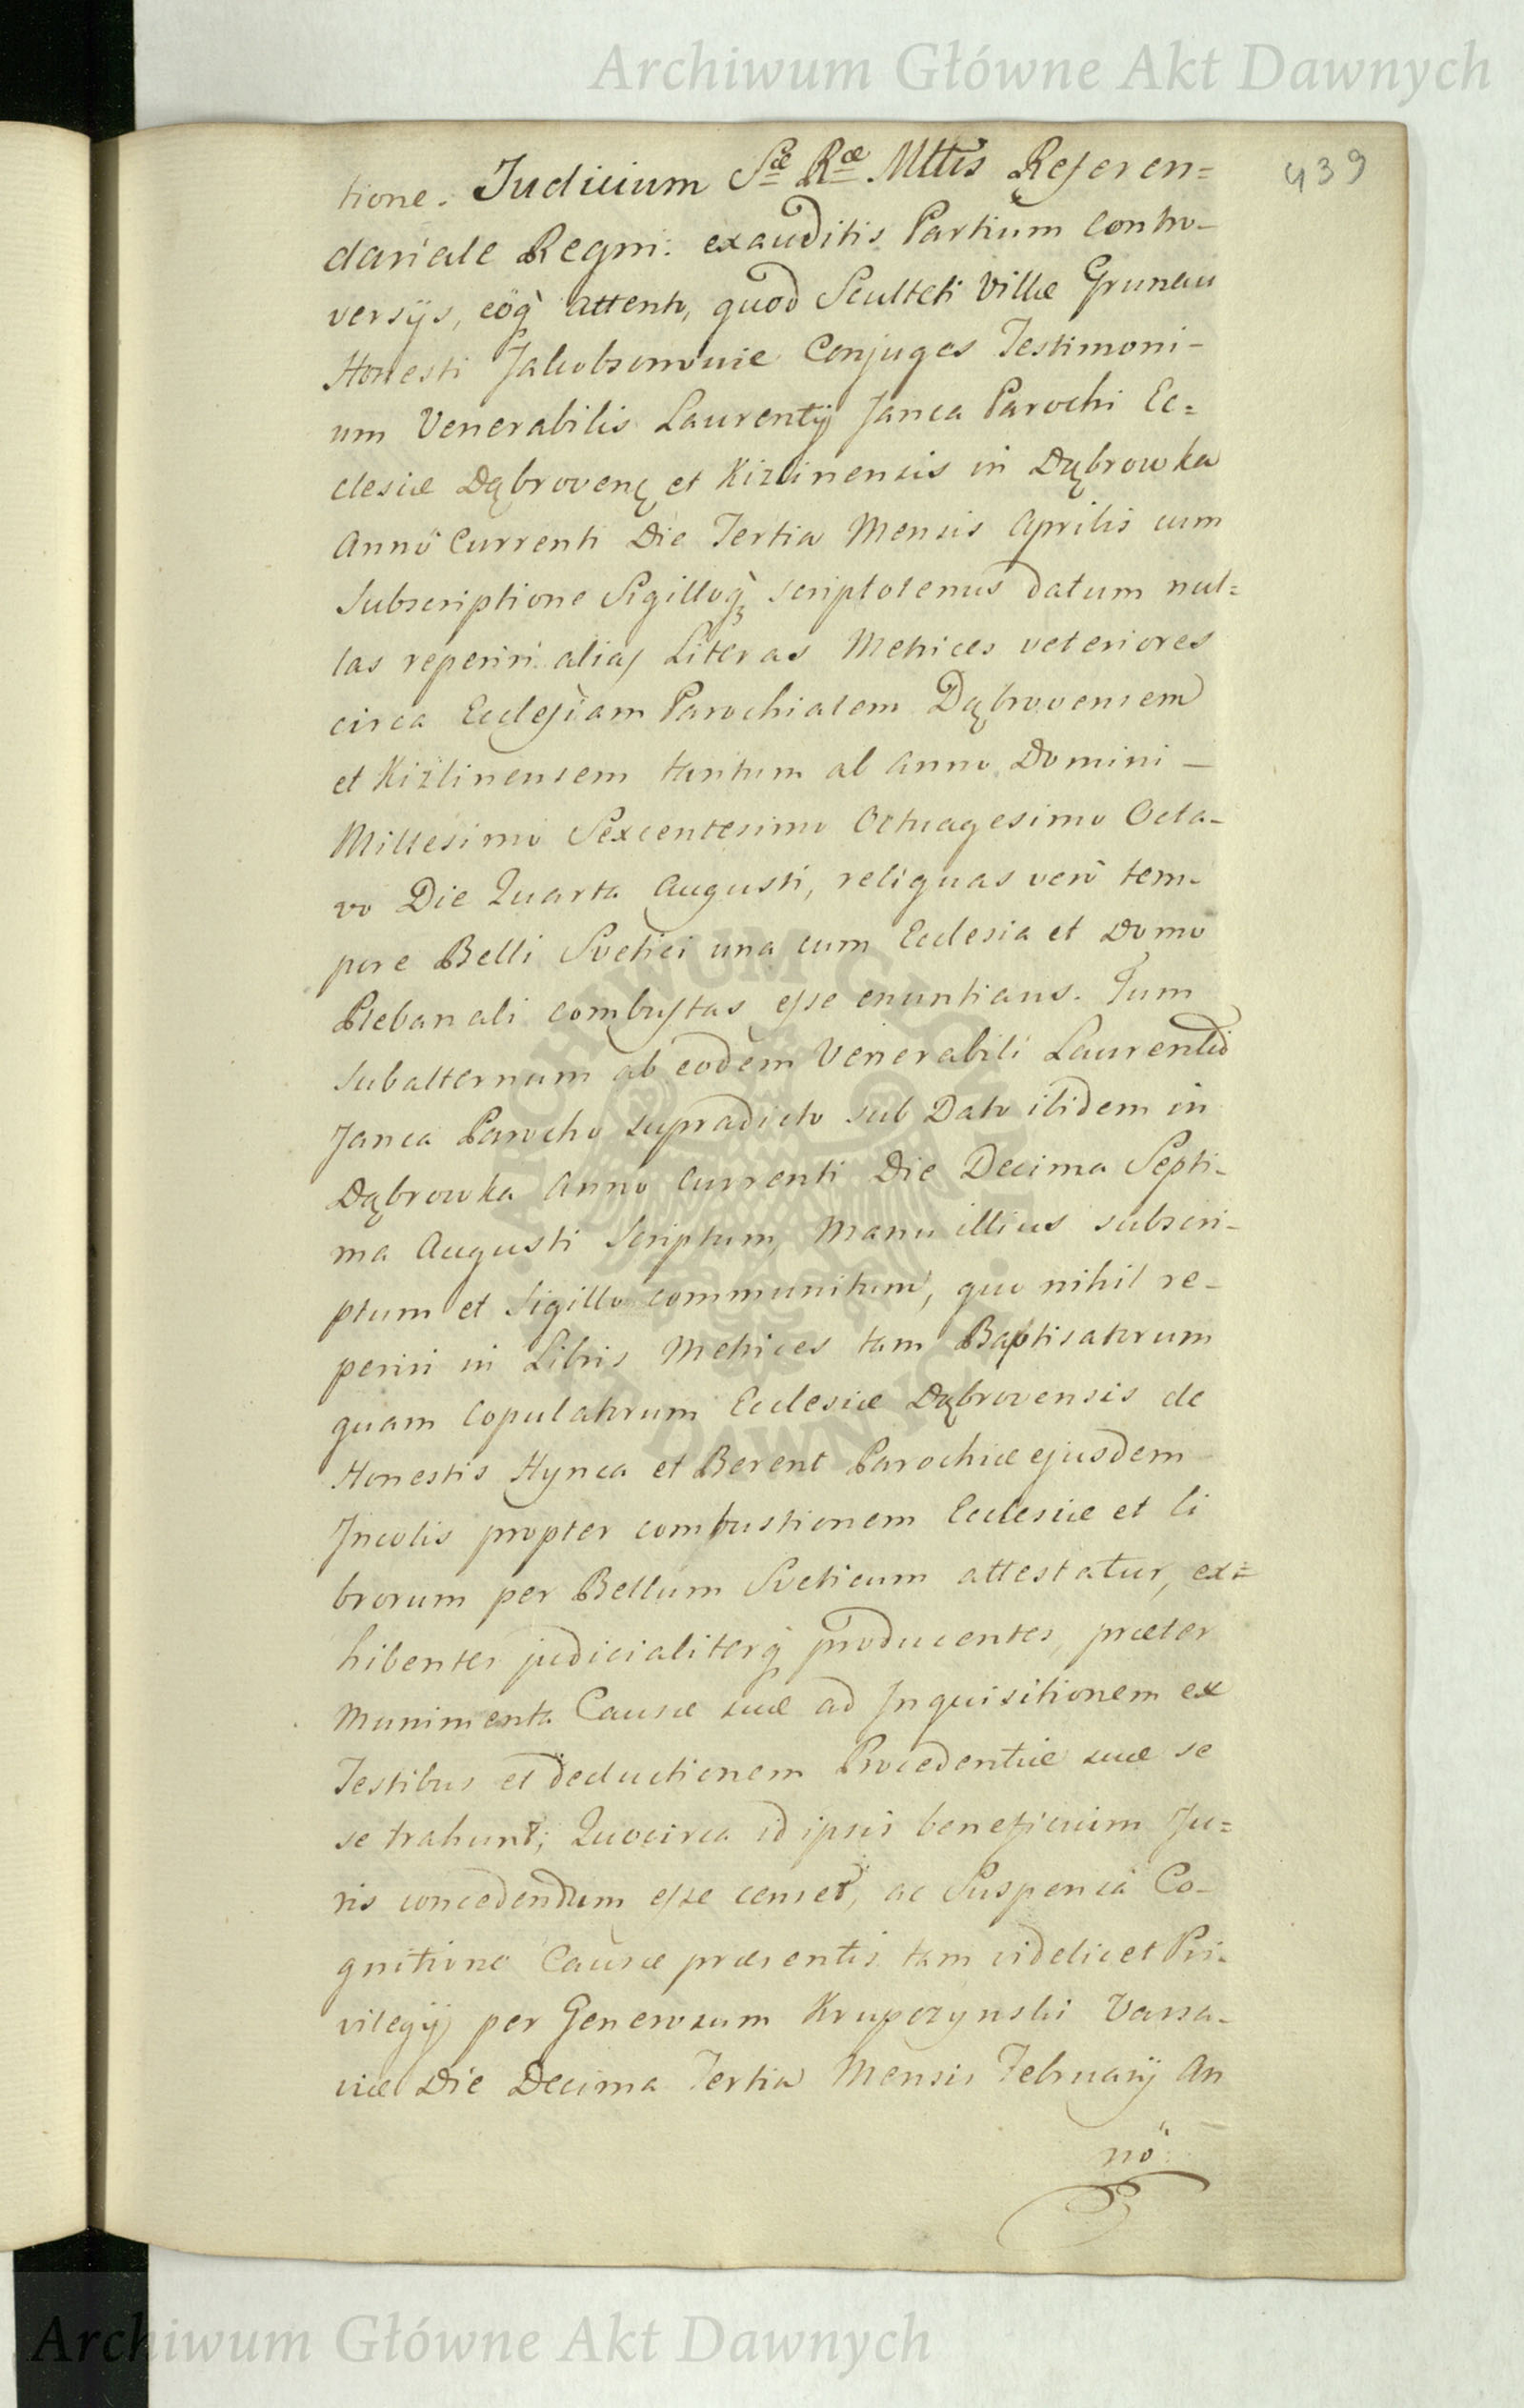 Archiwum Główne Akt Dawnych
439
tione. Judicium Sæ Ræ Mttis Referen=
dariale Regni: exauditis Partium Contro-
versijs, eóq̀ attento, quod Sculteti Villæ Grunau
Honesti Jakobsonowie Conjuges Testimoni-
um Venerabilis Laurentij Janca Parochi Ec=
clesiæ Dąbrovenę et Kizlinensis in Dąbrowka
Annô Currenti Die Tertia Mensis Aprilis cum
Subscriptione Sigilloq̀ scriptotenus datum nul=
las reperiri alias Literas Metrices veteriores
circa Ecclesiam Parochialem Dąbrovensem
et Kizlinensem tantum ab Anno Domini -
Millesimo Sexcentesimo Octuagesimo Octa-
vo Die Quarta Augusti, reliquas verò tem-
pore Belli Svetici una cum Ecclesia et Domo
Plebanali combustas esse enuntians. Tum
subalternum ab eodem Venerabili Laurentio
Janca Parocho supradicto sub Dato ibidem in
Dąbrowka Anno Currenti Die Decima Septi-
ma Augusti Scriptum, Manu illius subscri-
ptum et Sigillo communitum, quo nihil re-
periri in Libris Metrices tam Baptisatorum
quam Copulatorum Ecclesiæ Dąbrovensis de
Honestis Hynca et Berent Parochiæ ejusdem
Incolis propter combustionem Ecclesiæ et li
brorum per Bellum Sveticum attestatur, ex=
hibentes judicialiterq̀ producentes, præter
Munimenta Causæ suæ ad Inquisitionem ex
Testibus et deductionem Procedentiæ suæ se
se trahunt; Quocirca id ipsis beneficium Ju=
ris concedendum esse censet, ac Suspensâ Co-
gnitione Causæ præsentis tam videlicet Pri-
vilegij per Generosum Krupczynski Varsa-
viæ Die Decima Tertia Mensis Februarij An
nô
ARCHIWUM GŁÓWNE AKT DAWNYCH
Archiwum Główne Akt Dawnych